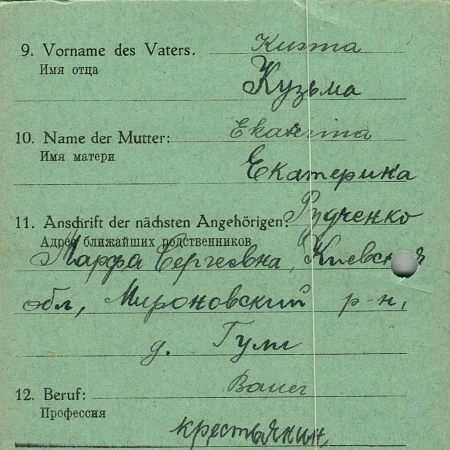 9. Vorname des Vaters. Kusma
Имя отца Кузьма
10. Name der Mutter: Ekaterina
Имя матери Екатерина
11. Anschrift der nächsten Angehörigen: Рудченко
Адрес ближайших родственников
Марфа Сергеевна, Киевская
обл, Мироновский р-н,
д. Гули
12. Beruf: Bauer
Профессия крестьянин